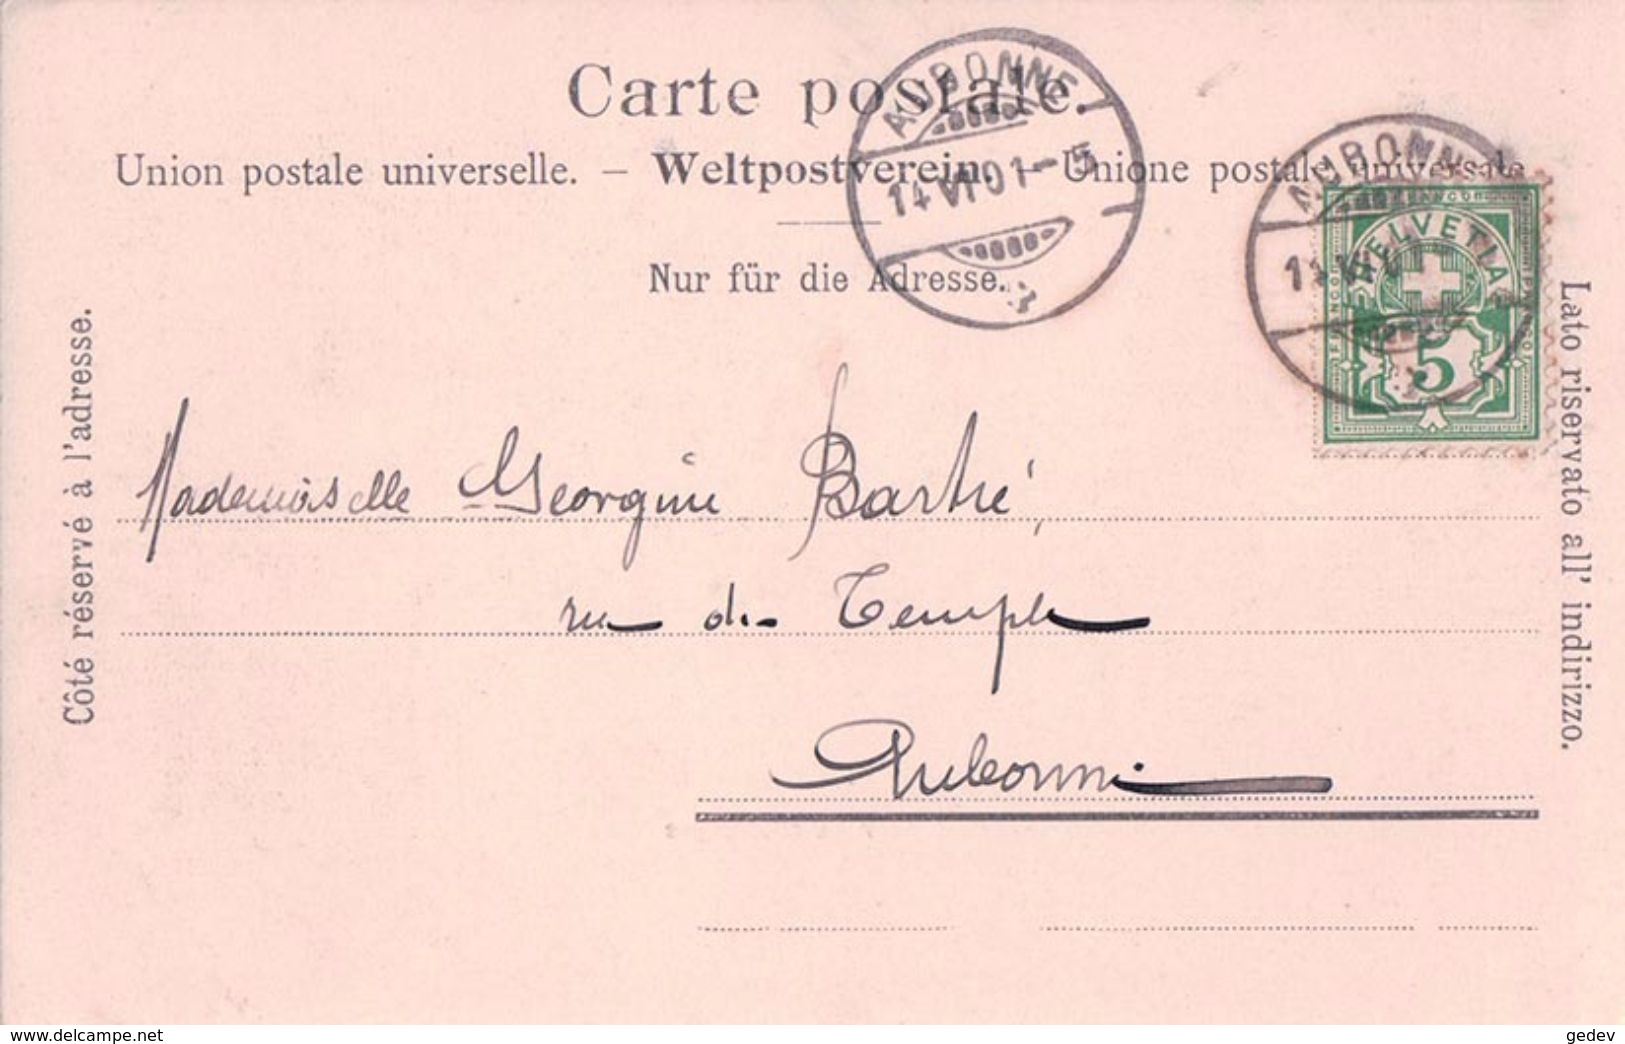 Carte postale.
Union postale universelle. – Weltpostverein. – Unione postale universale
Nur für die Adresse.
Côté réservé à l'adresse.
Lato riservato all' indirizzo.
AUBONNE
14 VI 01 - 5
AUBONNE
HELVETIA
5
Mademoiselle Georgine Bartré,
rue du Temple
Aubonne
www.delcampe.net
gedev